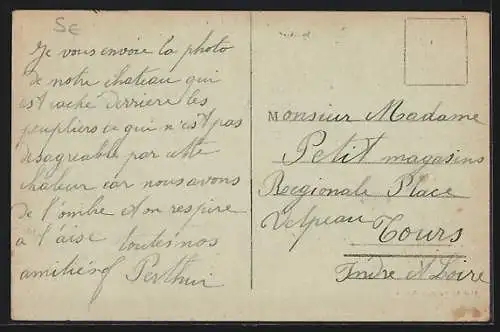 SE
Je vous envoie la photo
de notre chateau qui
est caché derriere les
peupliers ce qui n'est pas
desagreable par cette
chaleur car nous avons
de l'ombre et on respire
a l'aise toutes nos
amitiés
Monsieur Madame
Petit magasins
Regionale Place
Velpeau
Tours
Indre et Loire